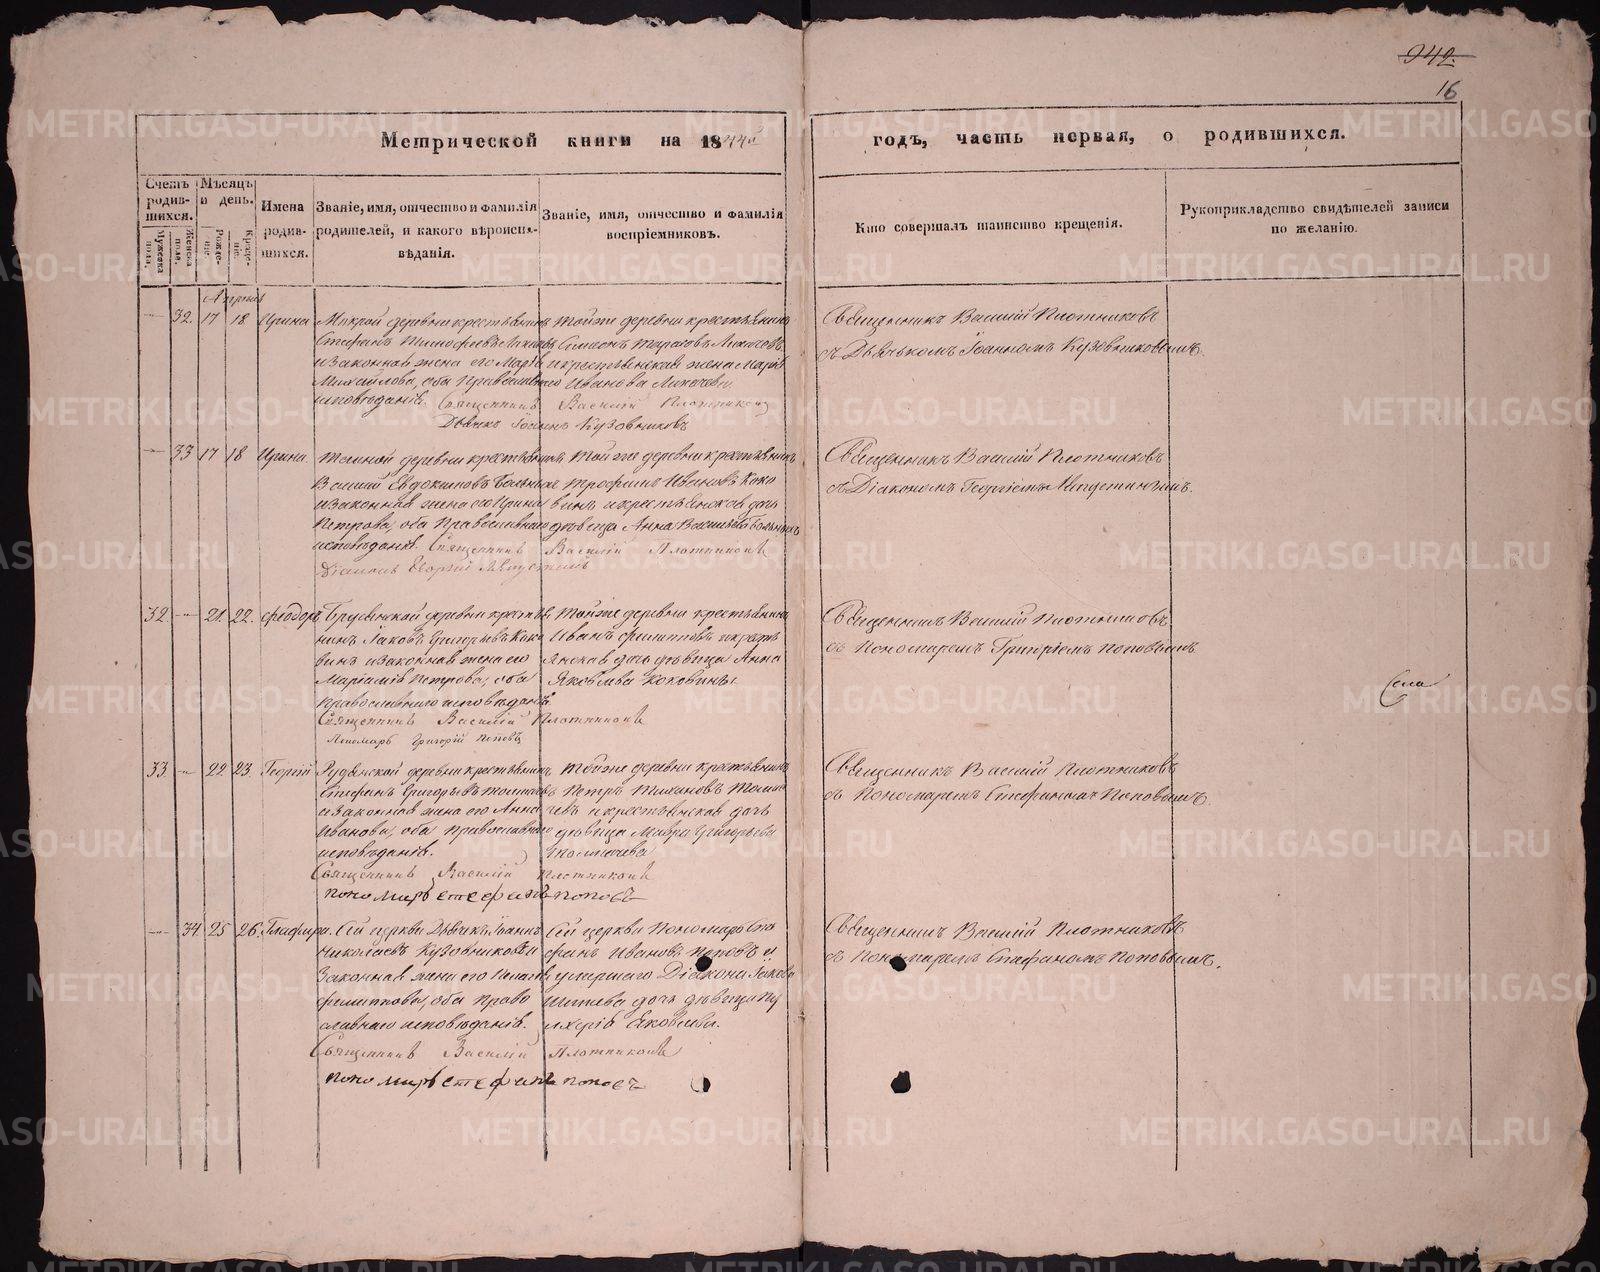 942.
16
Метрической книги на 1844й годъ, часть первая, о родившихся.
Счетъ родив-
шихся.
Мужеска пола.
Женска пола.
Мѣсяцъ и день.
Рожде-
ніе.
Креще-
ніе.
Имена
родив-
шихся.
Званіе, имя, отчество и фамилія
родителей, и какого вѣроиспо-
вѣданія.
Званіе, имя, отчество и фамилія
воспріемниковъ.
Кто совершалъ таинство крещенія.
Рукоприкладство свидѣтелей записи
по желанію.
Апрѣль
32. 17 18 Ирина
деревни крестьянинъ
Стефанъ Тимофеевъ
и законная жена его Марія
Михайлова, оба православнаго
исповѣданія.
Тойже деревни крестьянинъ
Симеонъ Тарасовъ
и крестьянская жена Марія
Иванова
Священникъ Василій Плотниковъ
Дьячекъ Іоаннъ Кузовниковъ
Священникъ Василій Плотниковъ
съ Дьячькомъ Іоанномъ Кузовниковымъ.
33 17 18 Ирина
деревни крестьянинъ
Василій Евдокимовъ
и законная жена его Ирина
Петрова, оба православнаго
исповѣданія.
Тойже деревни крестьянинъ
Трофимъ Ивановъ Коко
винъ и крестьянская дочь
дѣвица Анна Васильева
Священникъ Василій Плотниковъ
Діаконъ Георгій
Священникъ Василій Плотниковъ
съ Діакономъ Георгіемъ
32. 21. 22. Феодоръ
деревни крестья
нинъ Іаковъ Григорьевъ Коко
винъ и законная жена его
Петрова, оба
православнаго исповѣданія
Тойже деревни крестьянинъ
Иванъ Филипповъ и кресть
янская дочь дѣвица Анна
Яковлева Коковины.
Священникъ Василій Плотниковъ
Пономарь Григорій Поповъ
Священникъ Василій Плотниковъ
съ Пономаремъ Григоріемъ Поповымъ
33. 22. 23. Георгій
деревни крестьянинъ
Стефанъ Григорьевъ Толмачевъ
и законная жена его Анна
Иванова, оба православнаго
исповѣданія.
Тойже деревни крестьянинъ
Петръ Толма
чевъ и крестьянская дочь
дѣвица Мавра Григорьева
Толмачева
Священникъ Василій Плотниковъ
Пономарь Стефанъ Поповъ
Священникъ Василій Плотниковъ
съ Пономаремъ Стефаномъ Поповымъ.
34 25 26. Глафира.
Сей церкви Дьячекъ Іоаннъ
Николаевъ Кузовниковъ и
законная жена его
Филиппова, оба право
славнаго исповѣданія.
Сей церкви Пономарь Сте
фанъ Ивановъ Поповъ и
умершаго Діакона Іакова
дочь дѣвица Пу
лхерія Яковлева.
Священникъ Василій Плотниковъ
Пономарь Стефанъ Поповъ
Священникъ Василій Плотниковъ
съ Пономаремъ Стефаномъ Поповымъ.
Села
METRIKI.GASO-URAL.RU